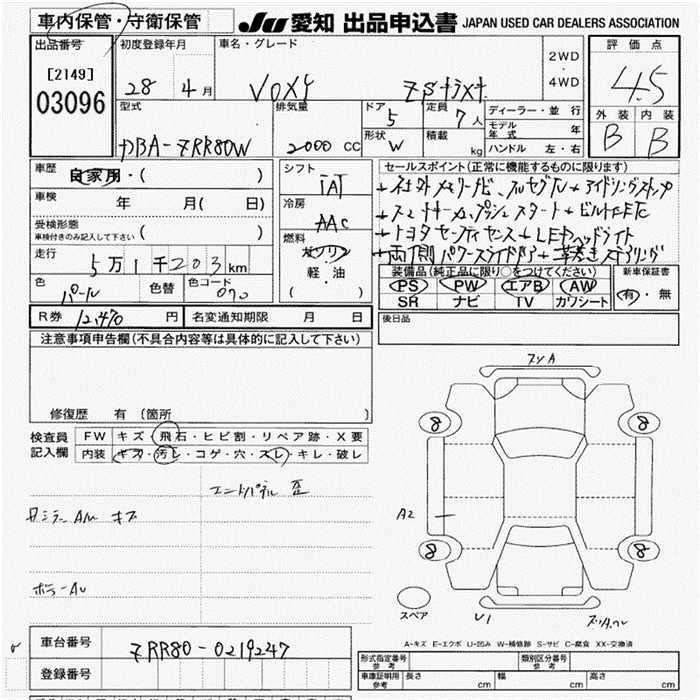 車内保管・守衛保管
JU 愛知 出品申込書 JAPAN USED CAR DEALERS ASSOCIATION
出品番号
[2149]
03096
初度登録年月
28 4月
車名・グレード
VOXY ZSキラメキ
2WD
・
4WD
評価点
4.5
外装 内装
B B
型式
DBA-ZRR80W
排気量
2000 CC
ドア
5
形状
W
定員
7人
積載
kg
ディーラー・並行
モデル年式 年
ハンドル 左・右
車歴
自家用・( )
車検
年 月( 日)
受検形態
車検付きのみ記入して下さい ( )
走行
5万1千203km
色
パール
色替
色コード
070
シフト
IAT
冷房
AAC
燃料
ガソリン
・
軽・油
( )
セールスポイント(正常に機能するものに限ります)
+社外メモリーナビ、フルセグTV+アイドリングストップ
+スマートキー+プッシュスタート+ビルトインETC
+トヨタセーフティセンス+LEDヘッドライト
+両側パワースライドドア+革巻きステアリング
装備品(純正品に限り○をつけてください)
PS PW エアB AW
SR ナビ TV カワシート
新車保証書
有・無
R券 12,470 円
名変通知期限 月 日
後日品
注意事項申告欄(不具合内容等は具体的に記入して下さい)
修復歴 有 〔箇所 〕
検査員
記入欄
FW キズ・飛石・ヒビ割・リペア跡・X要
内装 キズ・汚レ・コゲ・穴・スレ・キレ・破レ
エンドパネル 歪
ミラーAU キズ
ボデーAU
スソA
8 8
A2
8 8
スペア
U1
車台番号
ZRR80-0219247
登録番号
A-キズ E-エクボ U-凹み W-補修跡 S-サビ C-腐食 XX-交換済
形式指定番号
参考
類別区分番号
参考
車庫証明用
参考
長さ cm 幅 cm 高さ cm